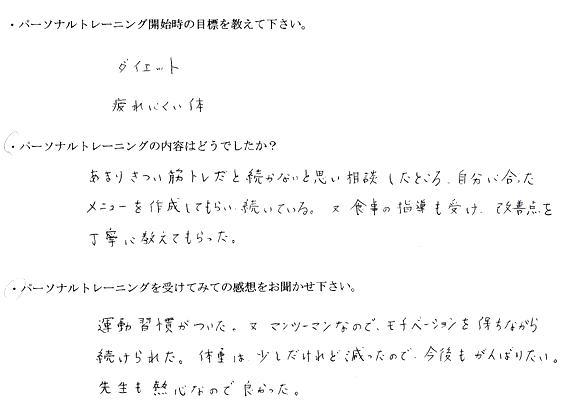 ・パーソナルトレーニング開始時の目標を教えて下さい。
ダイエット
疲れにくい体
・パーソナルトレーニングの内容はどうでしたか？
あまりきつい筋トレだと続かないと思い相談したところ、自分に合った
メニューを作成してもらい続いている。又食事の指導も受け、改善点を
丁寧に教えてもらった。
・パーソナルトレーニングを受けてみての感想をお聞かせ下さい。
運動習慣がついた。又マンツーマンなので、モチベーションを保ちながら
続けられた。体重は少しだけれど減ったので、今後もがんばりたい。
先生も熱心なので良かった。